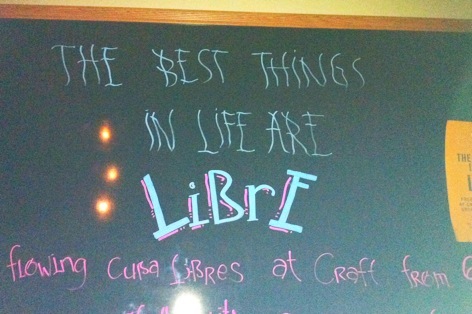 THE BEST THINGS
IN LIFE ARE
LiBrE
flowing CUBA LIBRES at Craft from
THE